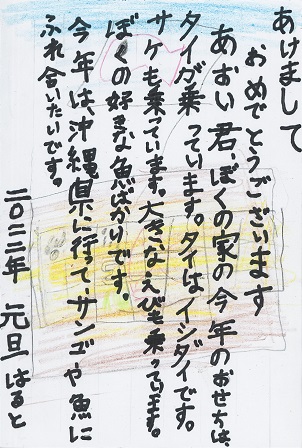 あけまして
おめでとうございます
あおい君、ぼくの家の今年のおせちは、
タイが乗っています。タイはイシダイです。
サケも乗っています。大きなえびも乗ってます。
ぼくの好きな魚ばかりです。
今年は、沖縄県に行って、サンゴや魚に
ふれ合いたいです。
二〇二二年 元旦 はると